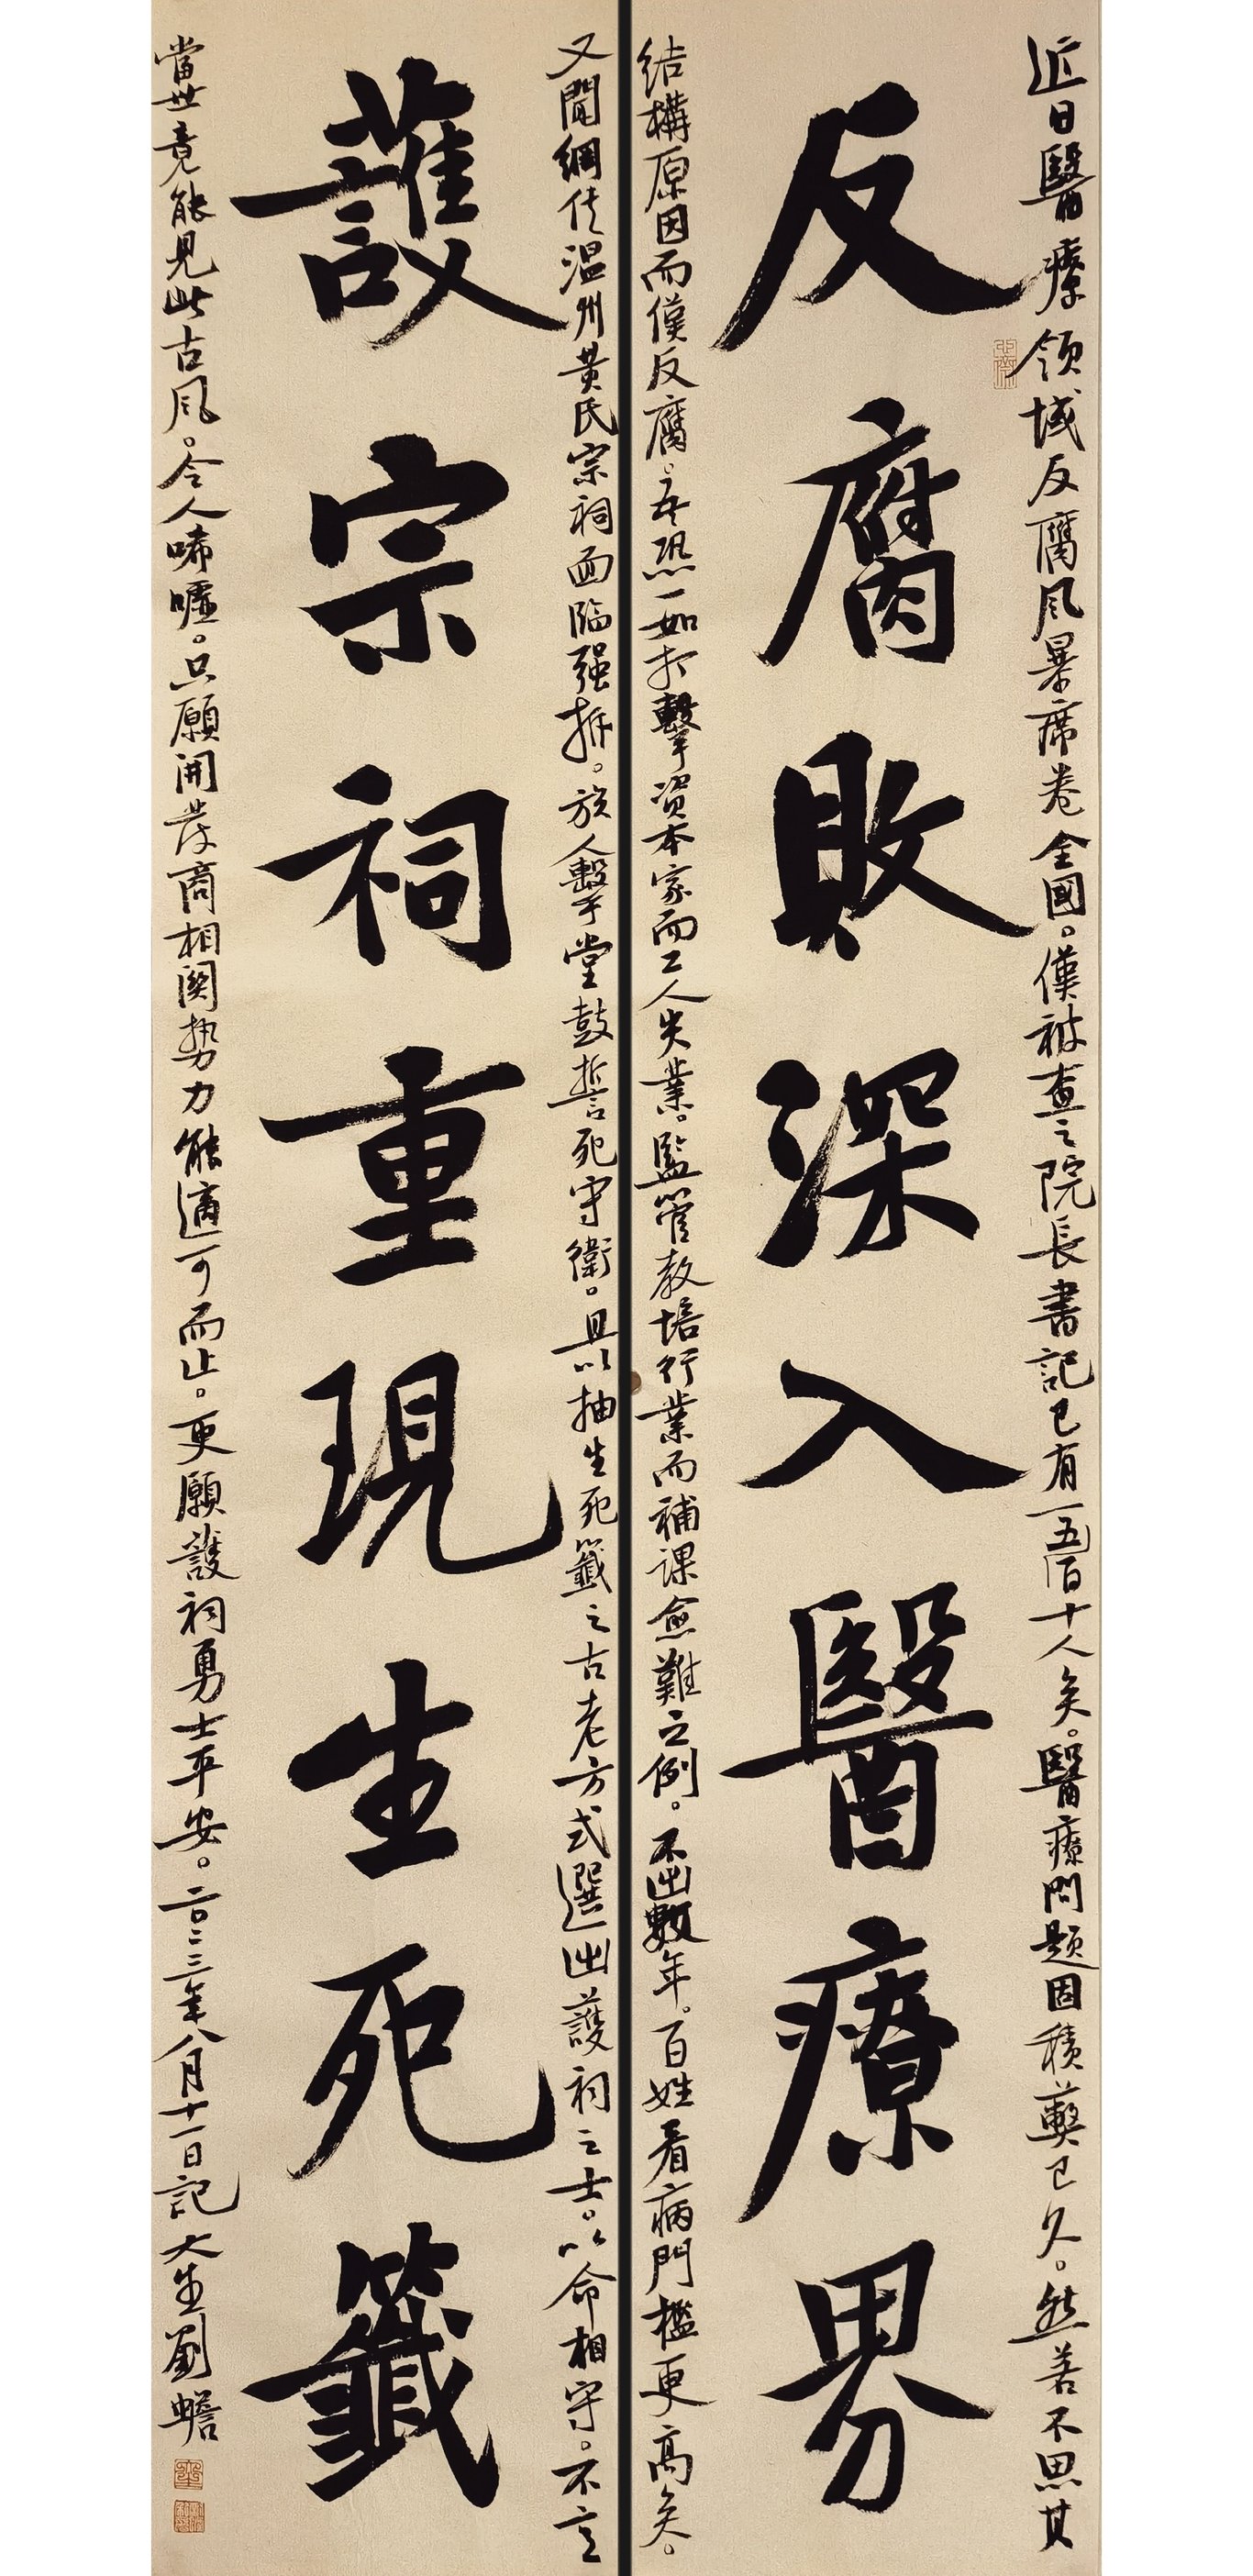 近日醫療領域反腐風暴席卷全國。僅被查之院長書記已有一百五十人矣。醫療問題固積弊已久。然若不思其
反腐敗深入醫療界
結構原因而僅反腐。吾恐一如打擊資本家而工人失業。監管教培行業而補課愈難之例。不出數年。百姓看病門檻更高矣。
又聞網傳温州黄氏宗祠面臨强拆。族人擊堂鼓誓死守衛。且以抽生死籤之古老方式選出護祠之士。以命相守。不意
護宗祠重現生死籤
當世竟能見此古風。令人唏噓。只願開發商相関勢力能適可而止。更願護祠勇士平安。二〇二三年八月十一日記 大生劉蟾